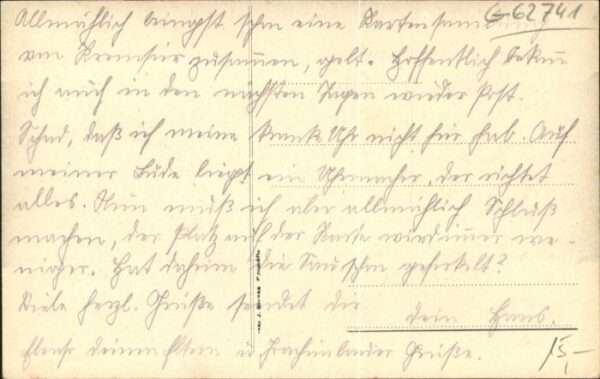 Allmählich bringst schon eine Kartensammlung G 62741
von Kremsier zusammen, gelt. Hoffentlich bekomm
ich auch in den nächsten Tagen wieder Post.
Schad, daß ich meine kranke Uhr nicht hier hab. Auf
meiner Bude liegt ein Uhrmacher, der richtet
alles. Nun muß ich aber allmählich Schluß
machen, der Platz auf der Karte wird immer we-
niger. Hat daheim die Sau schon geferkelt?
Viele herzl. Grüße sendet dir
dein Hans.
Ebenso deinen Eltern u. Grüße.
15,-